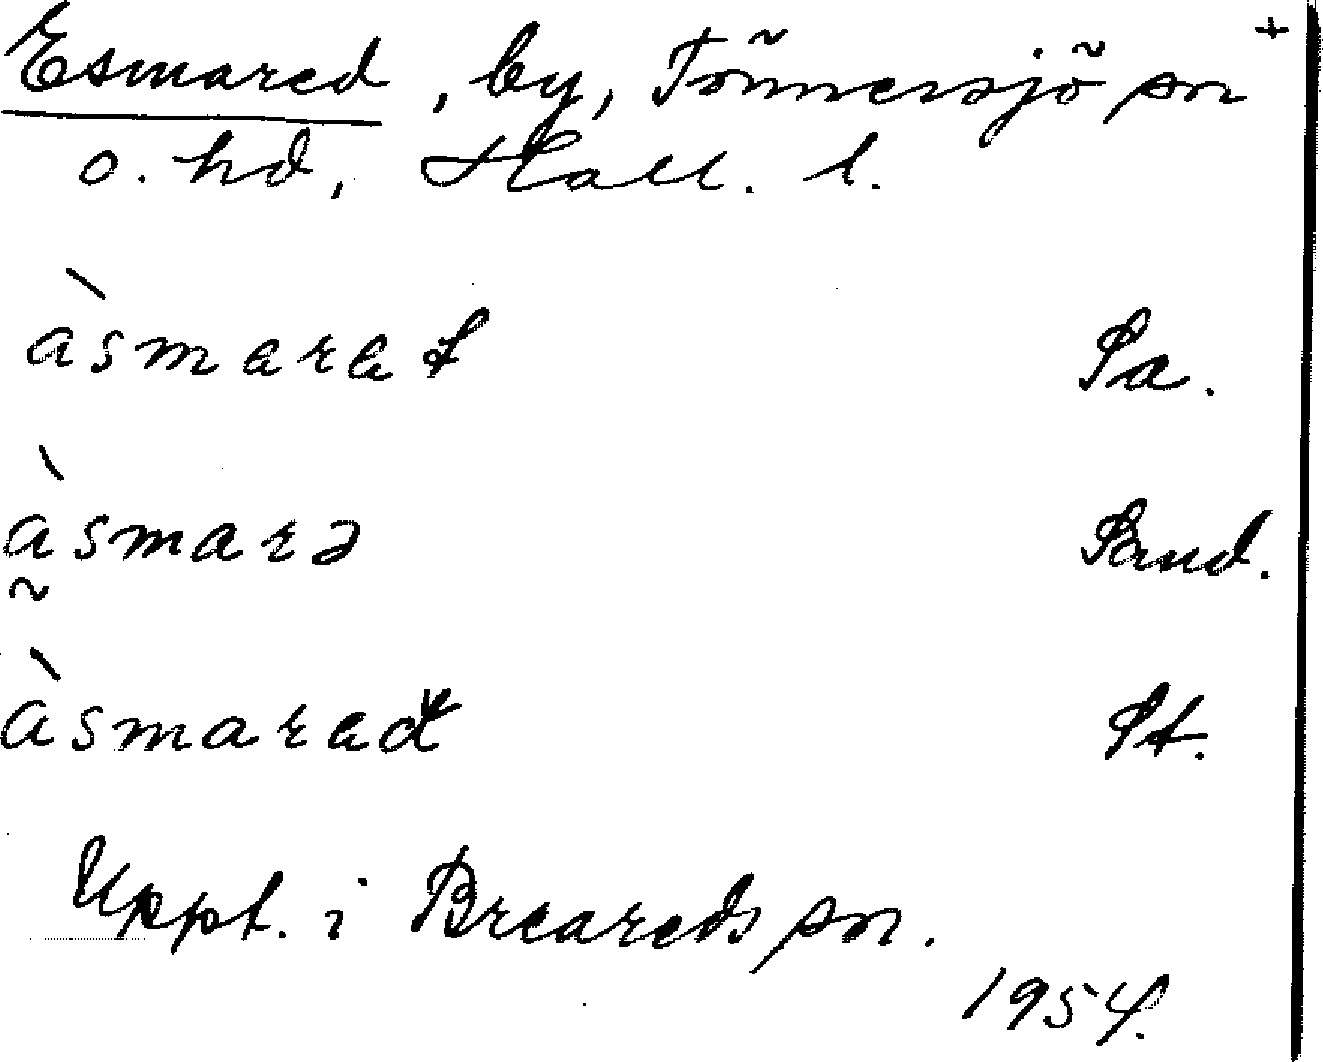 Esmared, by, Tönnersjö sn +
o. hd, Hall. l.
àsmarat Sa.
àsmarə Sand.
àsmarad St.
Uppt. i Breareds sn.
1954.